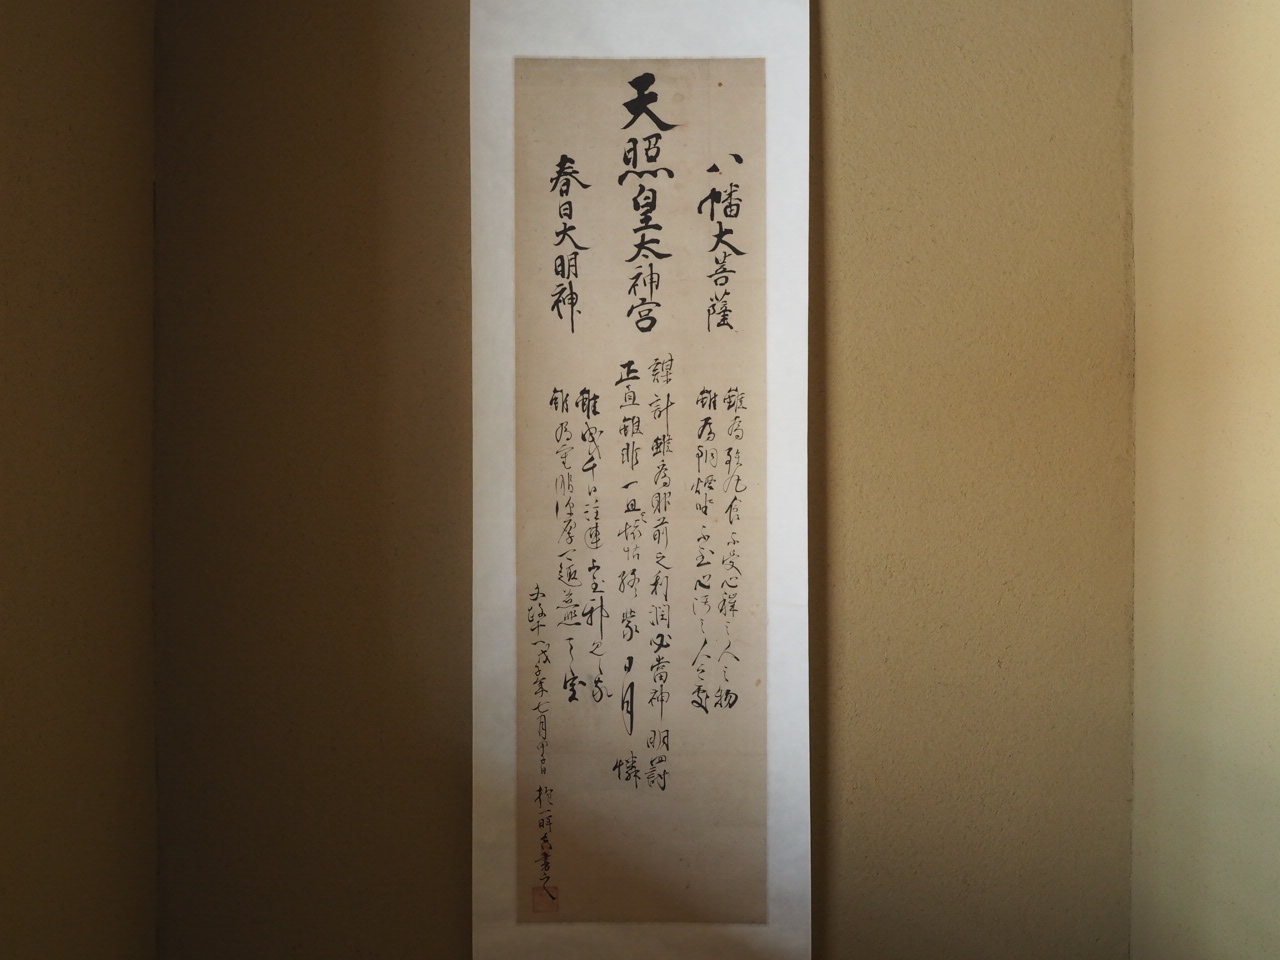 八幡大菩薩
雖為鉄丸食不受心穢之人之物
雖為銅焔坐不至心汚之人之處
天照皇太神宮
謀計雖為眼前之利潤必當神明罰
正直雖非一旦之依怙終蒙日月憐
春日大明神
雖曳千日注連不至邪見之家
雖為重服深厚可趣慈悲之室
文政十一戊子年七月 抱一暉真書之